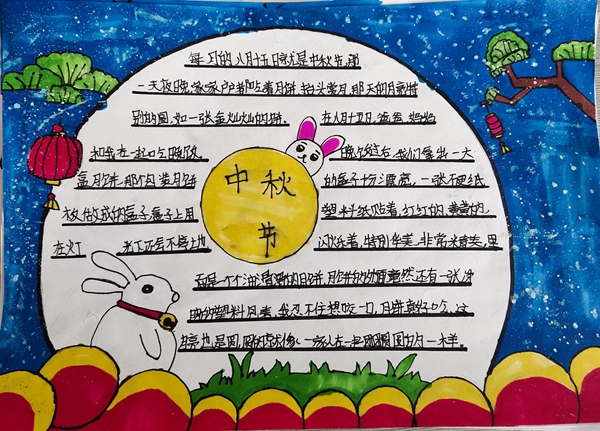 每年的八月十五日就是中秋节,那
一天夜晚,家家户户都吃着月饼,抬头赏月,那天的月亮特
别的圆,如一张金灿灿的月饼。 在八月十五日,爸爸 妈妈
和我在一起吃晚饭 晚饭过后,我们拿出一大
盒月饼,那个包装月饼 的盒子十分漂亮,一张硬纸
板做成的盒子,盒子上用 塑料纸贴着,红红的,黄黄的,
在灯 光下还会不停地 闪烁着,特别华美,非常
中秋
节
面是一个个油 的月饼,月饼的 竟然还有一张
的塑料 我忍不住想咬一口,月饼真好吃,这
月亮也是圆 圆的 一家人在一起 圆 一样。